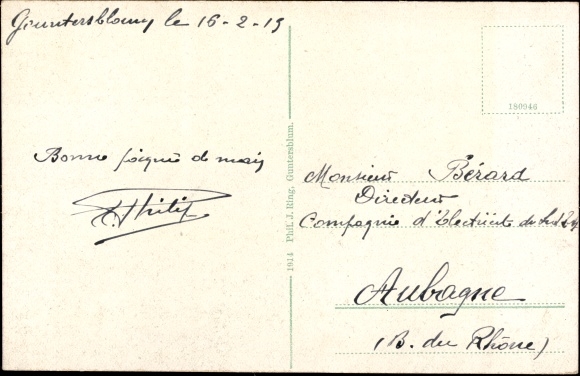 Guntersblum le 16-2-19
180946
Bonne poignée de main
Philip
1914 Phil. J. Ring, Guntersblum.
Monsieur Bérard
Directeur
Compagnie d'Electricité du
Aubagne
(B. du Rhône)